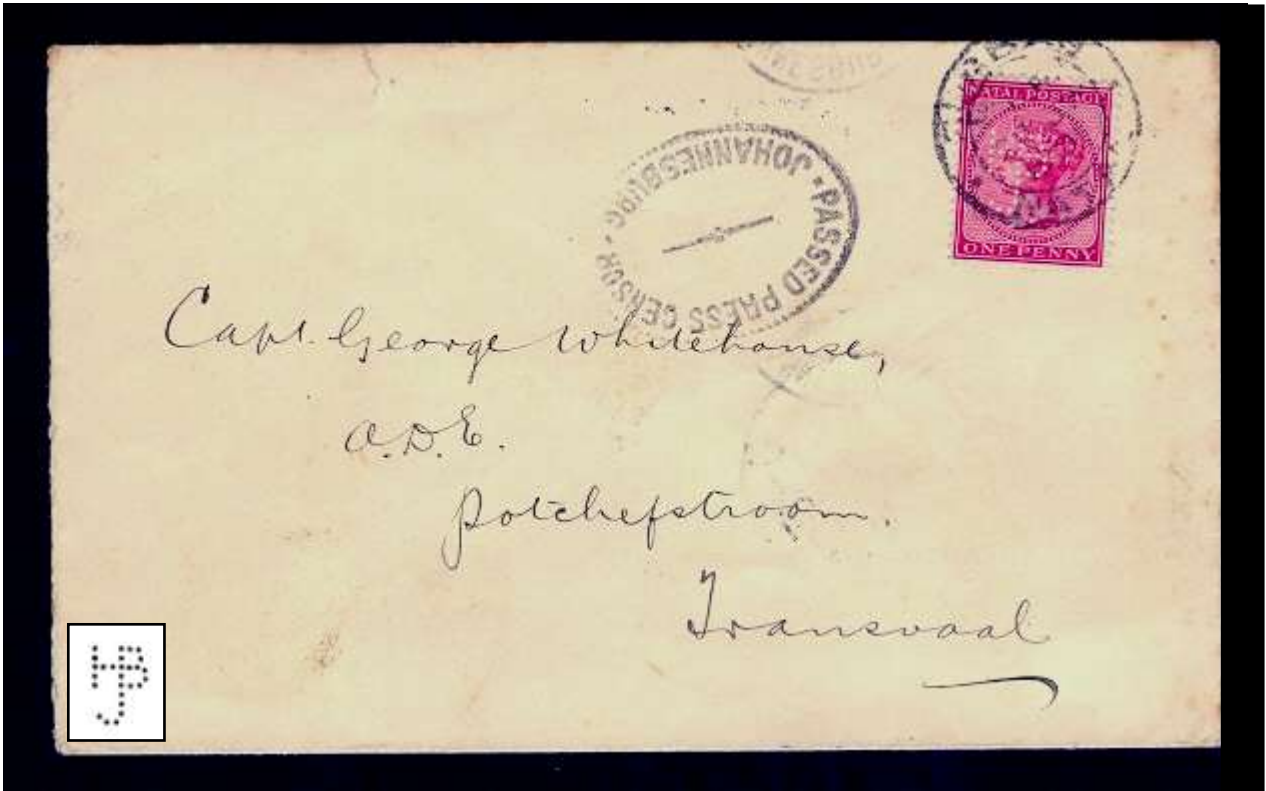 NATAL POSTAGE
ONE PENNY
PASSED PRESS CENSOR · JOHANNESBURG ·
Capt. George Whitehouse,
A.D.E.
Potchefstroom.
Transvaal
HBJ